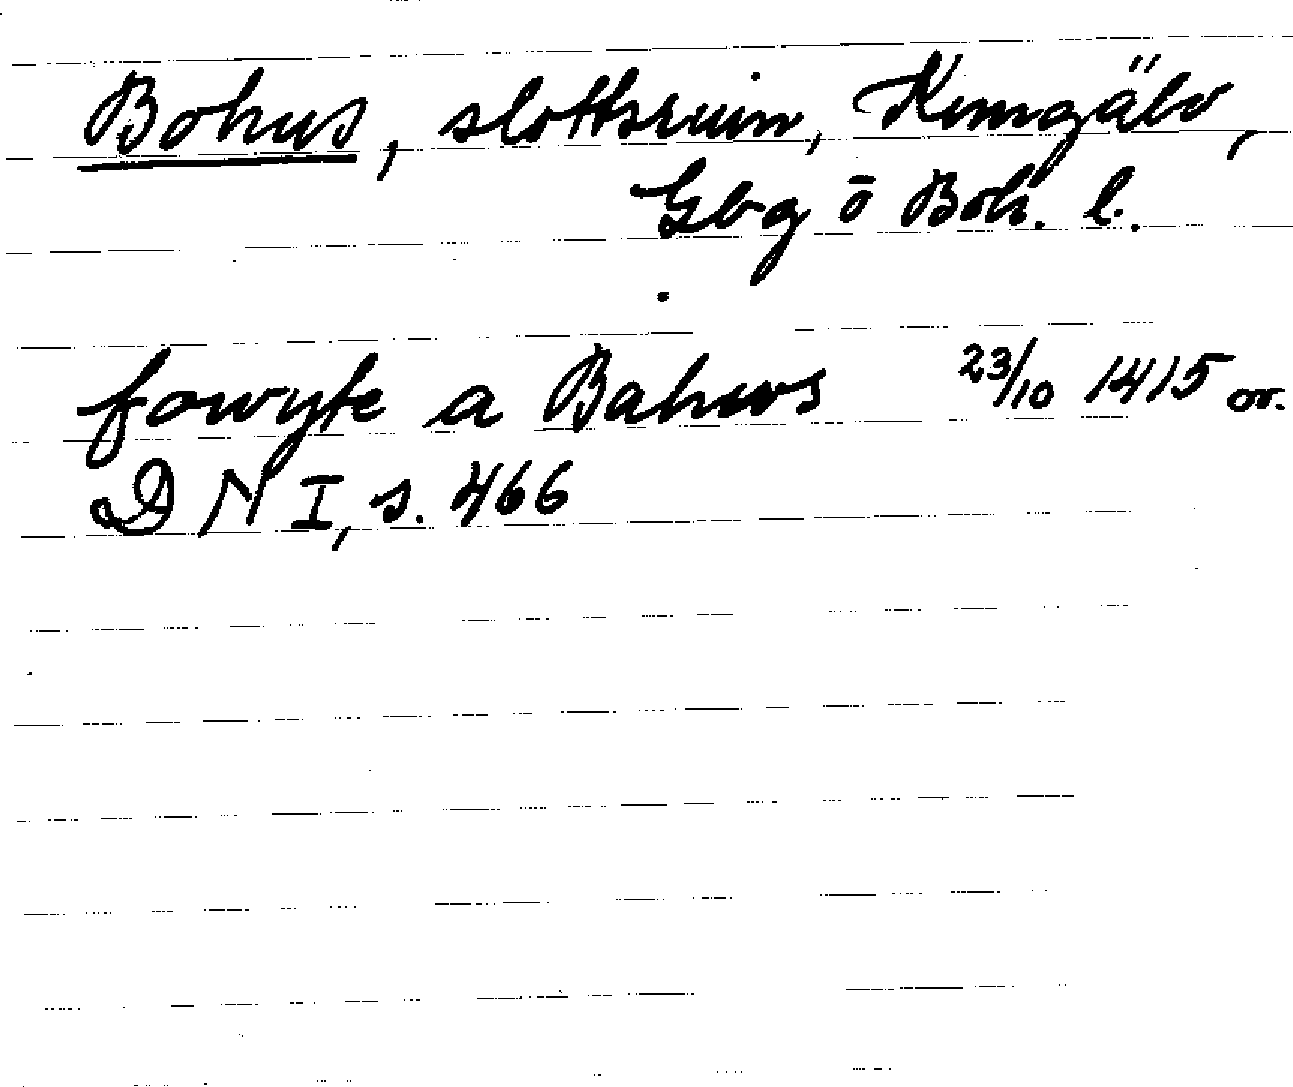 Bohus, slottsruin, Kungälv,
Gbg ō Boh. l.
fowyte a Bahws 23/10 1415 or.
D N I, s. 466